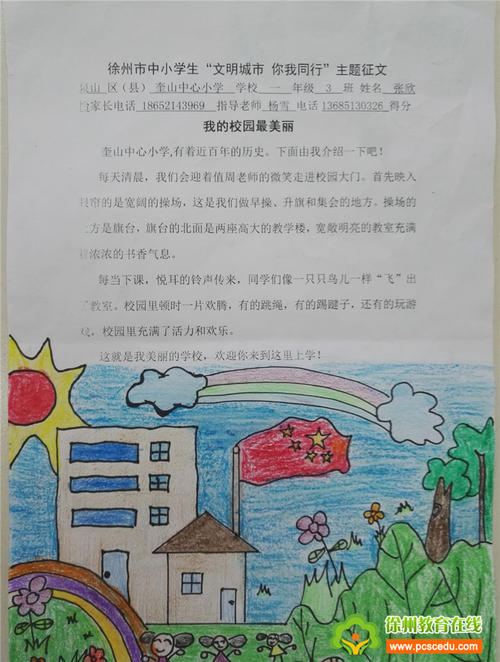 徐州市中小学生“文明城市 你我同行”主题征文
泉山 区（县） 奎山中心小学 学校 一 年级 3 班 姓名 张欣
怡家长电话 18652143969 指导老师 杨雪 电话 13685130326 得分
我的校园最美丽
奎山中心小学,有着近百年的历史。下面由我介绍一下吧！
每天清晨，我们会迎着值周老师的微笑走进校园大门。首先映入
眼帘的是宽阔的操场，这是我们做早操、升旗和集会的地方。操场的
北方是旗台，旗台的北面是两座高大的教学楼，宽敞明亮的教室充满
着浓浓的书香气息。
每当下课，悦耳的铃声传来，同学们像一只只鸟儿一样“飞”出
了教室。校园里顿时一片欢腾，有的跳绳，有的踢毽子，还有的玩游
戏，校园里充满了活力和欢乐。
这就是我美丽的学校，欢迎你来到这里上学！
徐州教育在线
www.pcscedu.com